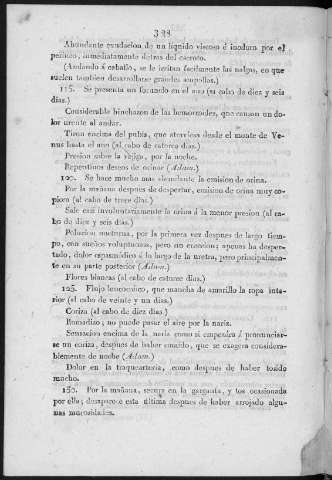 328
Abundante exudacion de un líquido viscoso é inodoro por el
perineo, inmediatamente detras del escroto.
(Andando á caballo, se le irritan facilmente las nalgas, en que
suelen tambien desarrollarse grandes ampollas.)
115. Se presenta un forúnculo en el ano (al cabo de diez y seis
dias.)
Considerable hinchazon de las hemorroides, que causan un do-
lor urente al andar.
Tiron encima del pubis, que atraviesa desde el monte de Ve-
nus hasta el ano (al cabo de catorce dias.)
Presion sobre la vejiga, por la noche.
Repentinos deseos de orinar (Adam.)
120. Se hace mucho mas abundante la emision de orina.
Por la mañana despues de despertar, emision de orina muy co-
piosa (al cabo de trece dias.)
Sale casi involuntariamente la orina á la menor presion (al ca-
bo de diez y seis dias.)
Polucion nocturna, por la primera vez despues de largo tiem-
po, con sueños voluptuosos, pero no ereccion; apenas ha desper-
tado, dolor espasmódico á lo largo de la uretra, pero principalmen-
te en su parte posterior (Adam.)
Flores blancas (al cabo de catorce dias.)
125. Flujo leucorreico, que mancha de amarillo la ropa inte-
rior (al cabo de veinte y un dias.)
Coriza (al cabo de diez dias.)
Romadizo; no puede pasar el aire por la nariz.
Sensacion encima de la nariz como si empezára á pronunciar-
se un coriza, despues de haber comido, que se exagera considera-
blemente de noche (Adam.)
Dolor en la traquearteria, como despues de haber tosido
mucho.
130. Por la mañana, sequra en la garganta, y tos ocasionada
por ella; desaparece esta última despues de haber arrojado algu-
nas mucosidades.